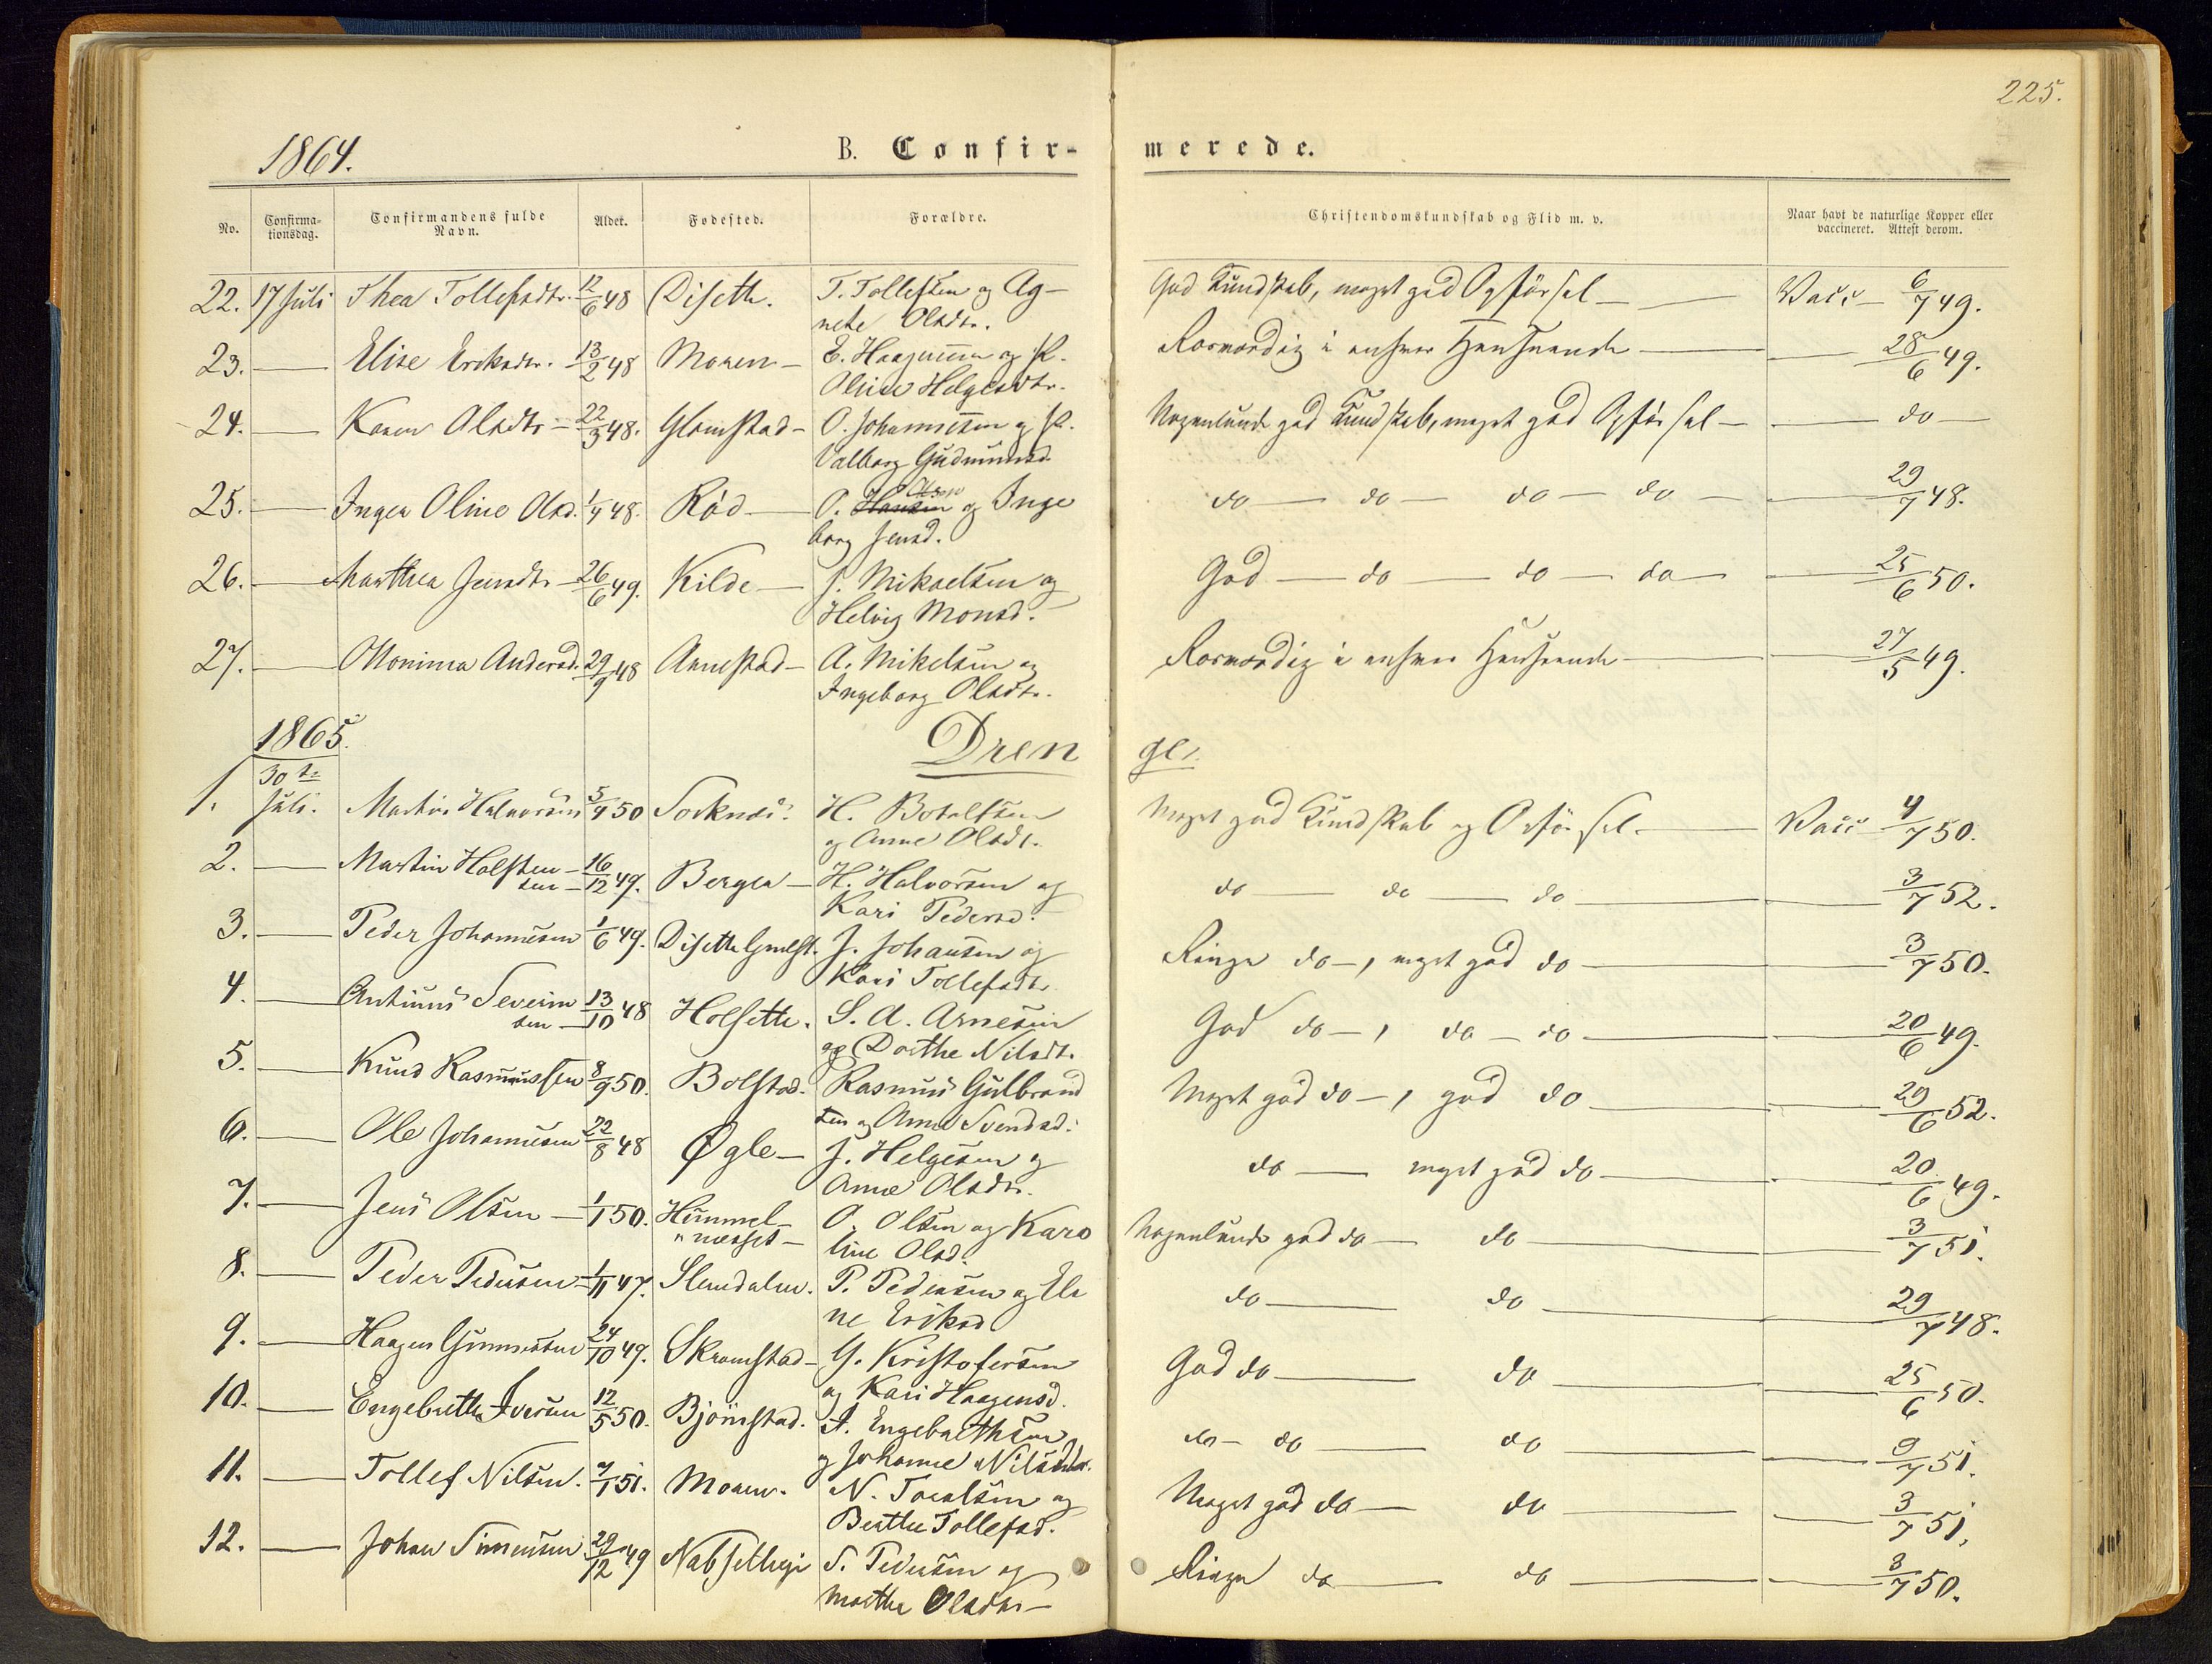 225.
1864.
B. Confir-
merede.
No.
Confirma-
tionsdag.
Confirmandens fulde
Navn.
Alder.
Fødested.
Forældre.
Christendomskundskab og Flid m. v.
Naar havt de naturlige Kopper eller
vaccineret. Attest derom.
22. 17 Juli Thea Tollefsdtr. 12/6 48 Diseth. T. Tollefsen og Ag-
nete Olsdtr.
God Kundskab, meget god Opførsel — Vacc — 6/7 49.
23. — Elise Eriksdtr. 13/2 48 Moren — E. Haagensen og K.
Oline Helgesdtr.
i enhver Henseende — 28/6 49.
24. — Karen Olsdtr — 22/3 48. Glomstad — O. Johannesen og K.
Valborg Gudmundsd.
Nogenlunde god Kundskab, meget god Opførsel — do —
25. — Inger Oline Olsd. 1/4 48. Rød — O. Hansen Olsen og Inge
borg Jensd.
do — do — do — do — 29/7 48.
26. — Marthea Jensdtr — 26/6 49. Kilde — J. Mikaelsen og
Helvig Monsd.
God — do — do — do — 25/6 50.
27. — Andersd. 29/9 48 Aanestad — A. Mikelsen og
Ingeborg Olsdtr.
i enhver Henseende — 27/5 49.
1865.
Dren
ge.
1. 30te
Juli. Martin Halvorsen 5/4 50 Sorknæs. H. Botolfsen
og Anne Olsdt.
Meget god Kundskab og Opførsel. — Vacc 4/7 50.
2. — Martin Holsten-
sen — 16/12 49. Berger — H. Halvorsen og
Kari Pedersd.
do — do — do — 3/7 52.
3. — Peder Johannesen 1/6 49. Diseth J. Johansen og
Kari Tollefsdtr.
Ringe do —, meget god do — 3/7 50.
4. — Antinius Severin
sen — 13/10 48 Holseth. S. A. Arnesen
og Dorthe Nilsdt.
God do —, do — do — 20/6 49.
5. — Knud Rasmussen 8/9 50. Bolstad. Rasmus Gulbrand
sen og Anne Svendsd.
Meget god do —, god do — 29/6 52.
6. — Ole Johannesen 22/8 48 Øgle — J. Helgesen og
Anne Olsdtr.
do — meget god do — 20/6 49.
7. — Jens Olsen — 1/1 50. Himmel-
" næsset — O. Olsen og Karo
line Olsd.
Nogenlunde god do — do — 3/7 51.
8. — Peder Pedersen — 1/11 47. Slemdalen. P. Pedersen og Ele
ne Eriksd
do — do — 29/7 48.
9. — Haagen Gunnersen 24/10 49. Skramstad — G. Kristofersen
og Kari Haagensd.
God do — do — 25/6 50.
10. — Engebreth Iversen 12/5 50. Bjørnstad. I. Engebrethsen
og Johanne Nilsdtr.
do — do — do — 9/7 51.
11. — Tollef Nilsen. 7/1 51. Moren. N. Toralsen og
Berthe Tollefsd.
Meget god do — do — 3/7 51.
12. — Johan Simensen 29/12 49 Nabsetheje S. Pedersen og
Marthe Olsdtr —
Ringe do — do — 3/7 50.